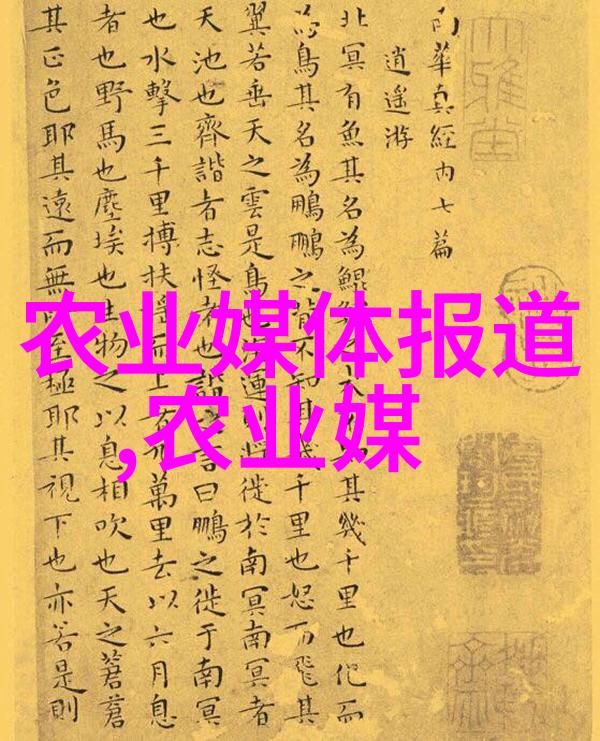 农业媒体报道
,农业媒
南華真經内七篇
逍遙游
北冥有魚其名為鯤大其幾千里也化而
為鳥其名為鵬鵬之背不知其幾千里也怒而飛其
翼若垂天之雲是鳥也運則將徙於南冥南冥者
天池也齊諧者志怪者也諧之言曰鵬之徙于南冥
也水擊三千里摶扶搖而上者九萬里去以六月息
者也野馬也塵埃也生物之以息相吹也天之蒼蒼
其正色耶其遠而無至極耶其視下也亦若是則